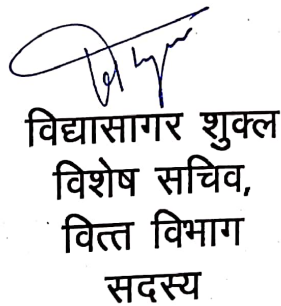 विद्यासागर शुक्ल
विशेष सचिव,
वित्त विभाग
सदस्य